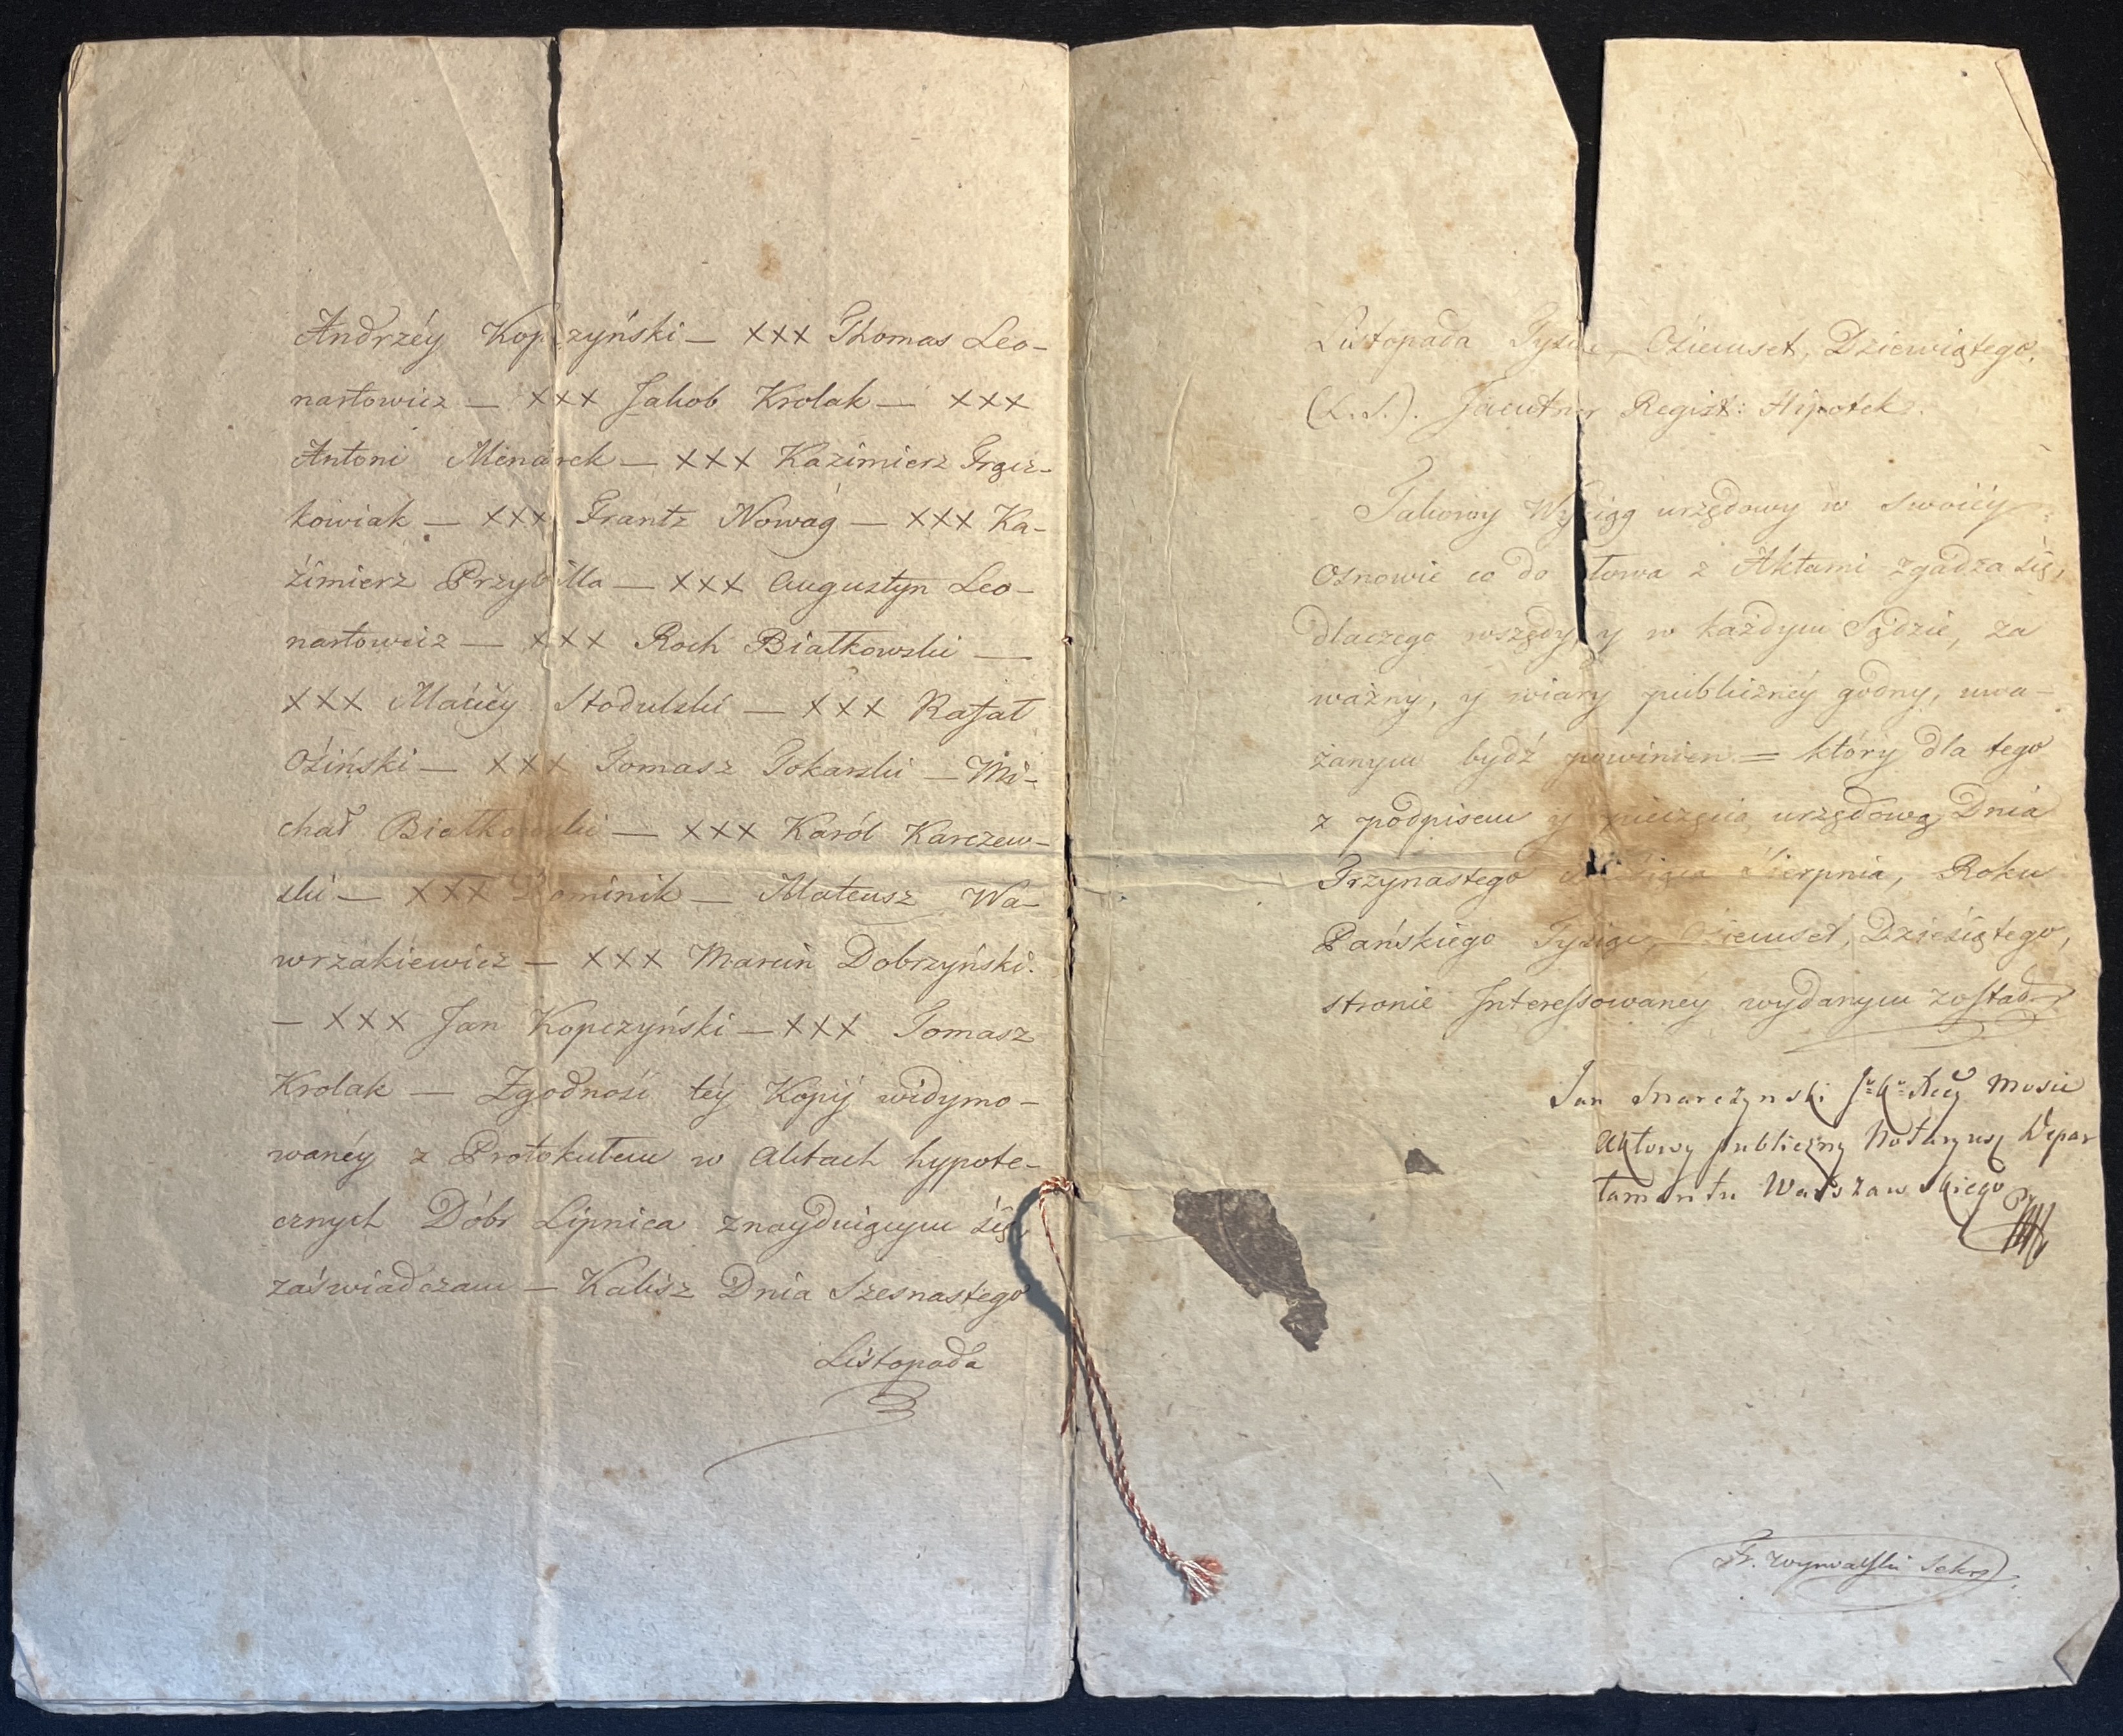 Andrzéy Kopczyński — xxx Thomas Leo-
nartowicz — xxx Jakob Krolak — xxx
Antoni Menárek — xxx Kazimierz
kowiak — xxx Frantz Nowag — xxx Ka-
źimierz Przybilla — xxx Augustyn Leo-
nartowicz — xxx Roch Białkowski —
xxx Maćiéy Stodulski — xxx Rafał
Oźiński — xxx Tomasz Tokarski — Mi-
chał Białkowski — xxx Karól Karczew-
ski — xxx Dominik — Mateusz Wa-
wrzakiewicz — xxx Marcin Dobrzyński.
— xxx Jan Kopczyński — xxx Tomasz
Krolak — Zgodność téy Kopij widymo-
wanéy z Protokułem w Aktach hypote-
cznych Dóbr Lipnica znayduiącym się
zaświadczam — Kalisz Dnia Szesnastego
Listopada
Listopada Tysiąc, Ośiemset, Dziewiątego.
(L.S.). Regist: Hipotek:
Takowy Wyciąg urzędowy w swoiéy
Osnowie co do słowa z Aktami zgadza się,
dlaczego wszędy, y w każdym Sądzie, za
ważny, y wiary publicznéy godny, uwa-
żanym bydź powinien = który dla tego
z podpisem y pieczęcią urzędową Dnia
Trzynastego Miesiąca Sierpnia, Roku
Pańskiego Tysiąc, Ośiemset, Dzieśiątego,
stronie Interessowanéy wydanym został
Jan
Aktowy publiczny Notaryusz Depar
tamentu Warszawskiego
Fr. Sekr